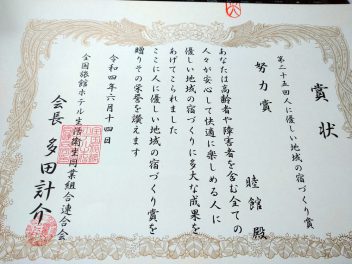 賞状
第二十五回人に優しい地域の宿づくり賞
努力賞
睦館 殿
あなたは高齢者や障害者を含む全ての
人々が安心して快適に楽しめる人に
優しい地域の宿づくりに多大な成果を
あげてこられました
ここに人に優しい地域の宿づくり賞を
贈りその栄誉を讃えます
令和四年六月十四日
全国旅館ホテル生活衛生同業組合連合会
会長 多田計介